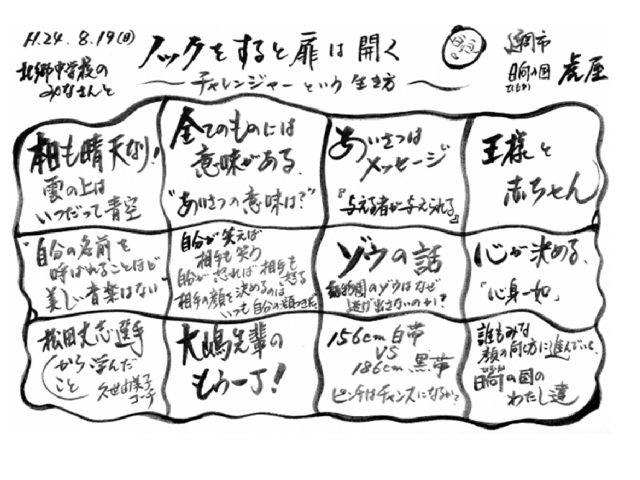 H.24.8.19(日)
北郷中学校の
みなさんと
ノックをすると扉は開く
〜チャレンジャーという生き方〜
日向の国 虎屋
ひむか
本日も晴天なり!
雲の上は
いつだって青空
全てのものには
意味がある。
"あいさつの意味は?"
あいさつは
メッセージ
『与える者が与えられる』
王様と
赤ちゃん
"自分の名前を
呼ばれることほど
美しい音楽はない"
自分が笑えば
相手も笑う
自分が怒れば相手も怒る
相手の顔を決めるのは
いつも自分の顔つきだ。
ゾウの話
動物園のゾウはなぜ
逃げ出さないのか?
心が決める。
「心身一如」
松田丈志選手
から学んだ
こと
久世由美子
コーチ
大嶋先輩の
もう一丁!
156cm白帯
VS
186cm黒帯
ピンチはチャンスになるか?
誰もみな
顔の向く方に進んでいく。
日向の国の
わたし達